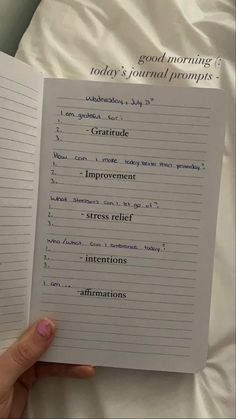 good morning :
today's journal prompts -
Wednesday, July 21
I am grateful for:
1.
2. - Gratitude
3.
How can I make today better than yesterday?
1.
2. - Improvement
3.
What stressors can I let go of?
1.
2. - stress relief
3.
Who/what can I embrace today?
1.
2. - intentions
3.
I am ...
-affirmations